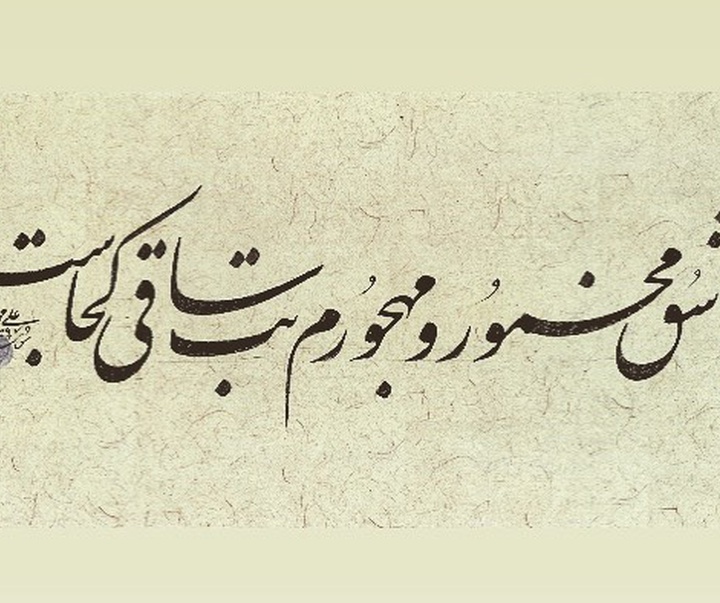 شق مخمور و مهجورم بت ساقی کجاست